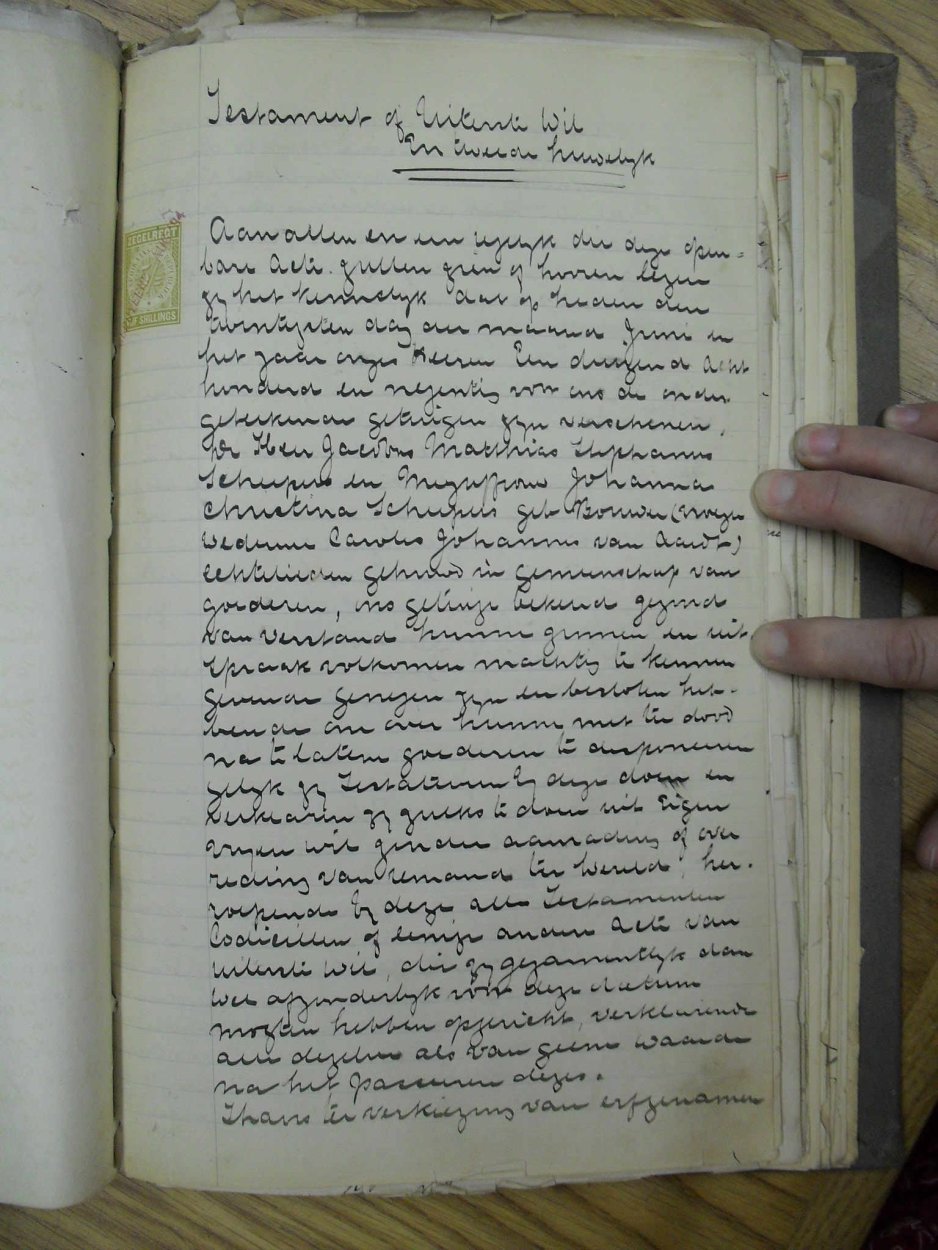 Testament of Uiterste Wil
En tweede huwelyk
ZEGELREGT
SHILLINGS
Aan allen en een iegelyk die deze open-
bare Acte zullen zien of hooren lezen
zy het kennelyk dat op heden den
twintigsten dag der maand Juni in
het jaar onzes Heeren Een duizend Acht
honderd en negentig voor ons de onder
geteekende getuigen zyn verschenen,
De Heer Jacobus Matthias Stephanus
Scheepers en Mejuffrouw Johanna
Christina Scheepers geb Bouwer (vroeger
weduwe Carolus Johannes van Aardt)
echtelieden gehuwd in gemeenschap van
goederen, ons getuige bekend gezond
van verstand hunne zinnen en uit
spraak volkomen machtig te kennen
gevende genegen zyn en besloten heb-
bende om over hunne met te dood
na te laten goederen te disponeren
gelyk zy Testateuren by deze doen en
verklaren zy zulks te doen uit Eigen
vryen wil zonder aanrading of over
reding van iemand ter wereld, her-
roepende by deze alle Testamenten
Codicillen of eenige andere Acte van
uiterste wil, die zy gezamentlyk dan
wel afzonderlyk voor deze datum
mogten hebben opgericht, verklarende
alle dezelve als van geene waarde
na het passeren dezes.
Thans ter verkiezing van erfgenamen